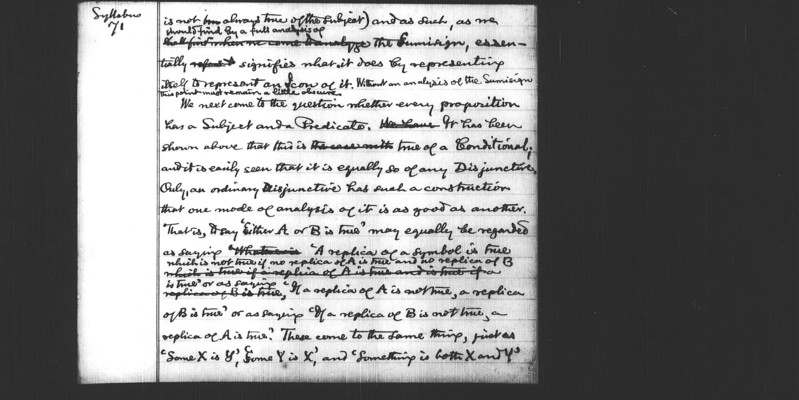 Syllabus
71
is not always true of the Subject) and as such, as we
should find by a full analysis of
shall find when we come to analyze the Sumisign, essen-
tially signifies what it does by representing
itself to represent an Icon of it. Without an analysis of the Sumisign
this point must remain a little obscure.
We next come to the question whether every proposition
has a Subject and a Predicate. We have It has been
shown above that this is the case with true of a Conditional;
and it is easily seen that it is equally so of any Disjunctive.
Only, an ordinary Disjunctive has such a construction
that one mode of analysis of it is as good as another.
That is, to say 'Either A or B is true' may equally be regarded
as saying 'A replica of a symbol is true
which is not true if no replica of A is true and no replica of B
which is true if a replica of A is true and is true if a
is true' or as saying
replica of B is true, 'If a replica of A is not true, a replica
of B is true' or as saying 'If a replica of B is not true, a
replica of A is true.' These come to the same thing, just as
'Some X is Y', 'Some Y is X', and 'Something is both X and Y'